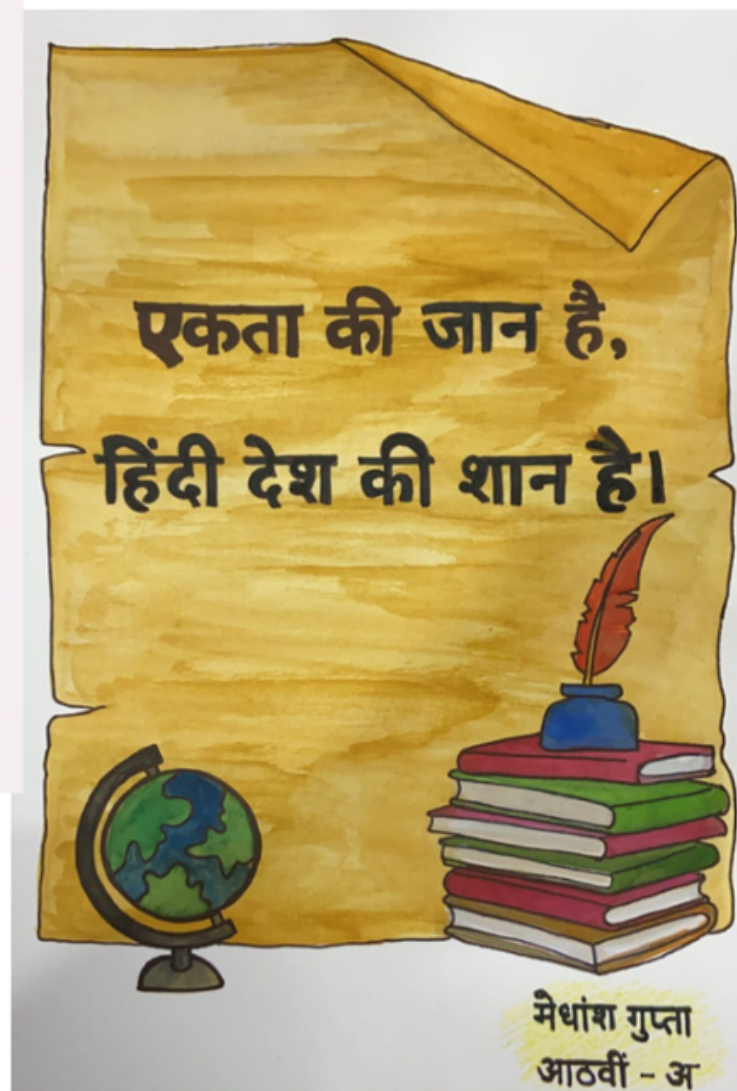 एकता की जान है,
हिंदी देश की शान है।
मेधांश गुप्ता
आठवीं - अ